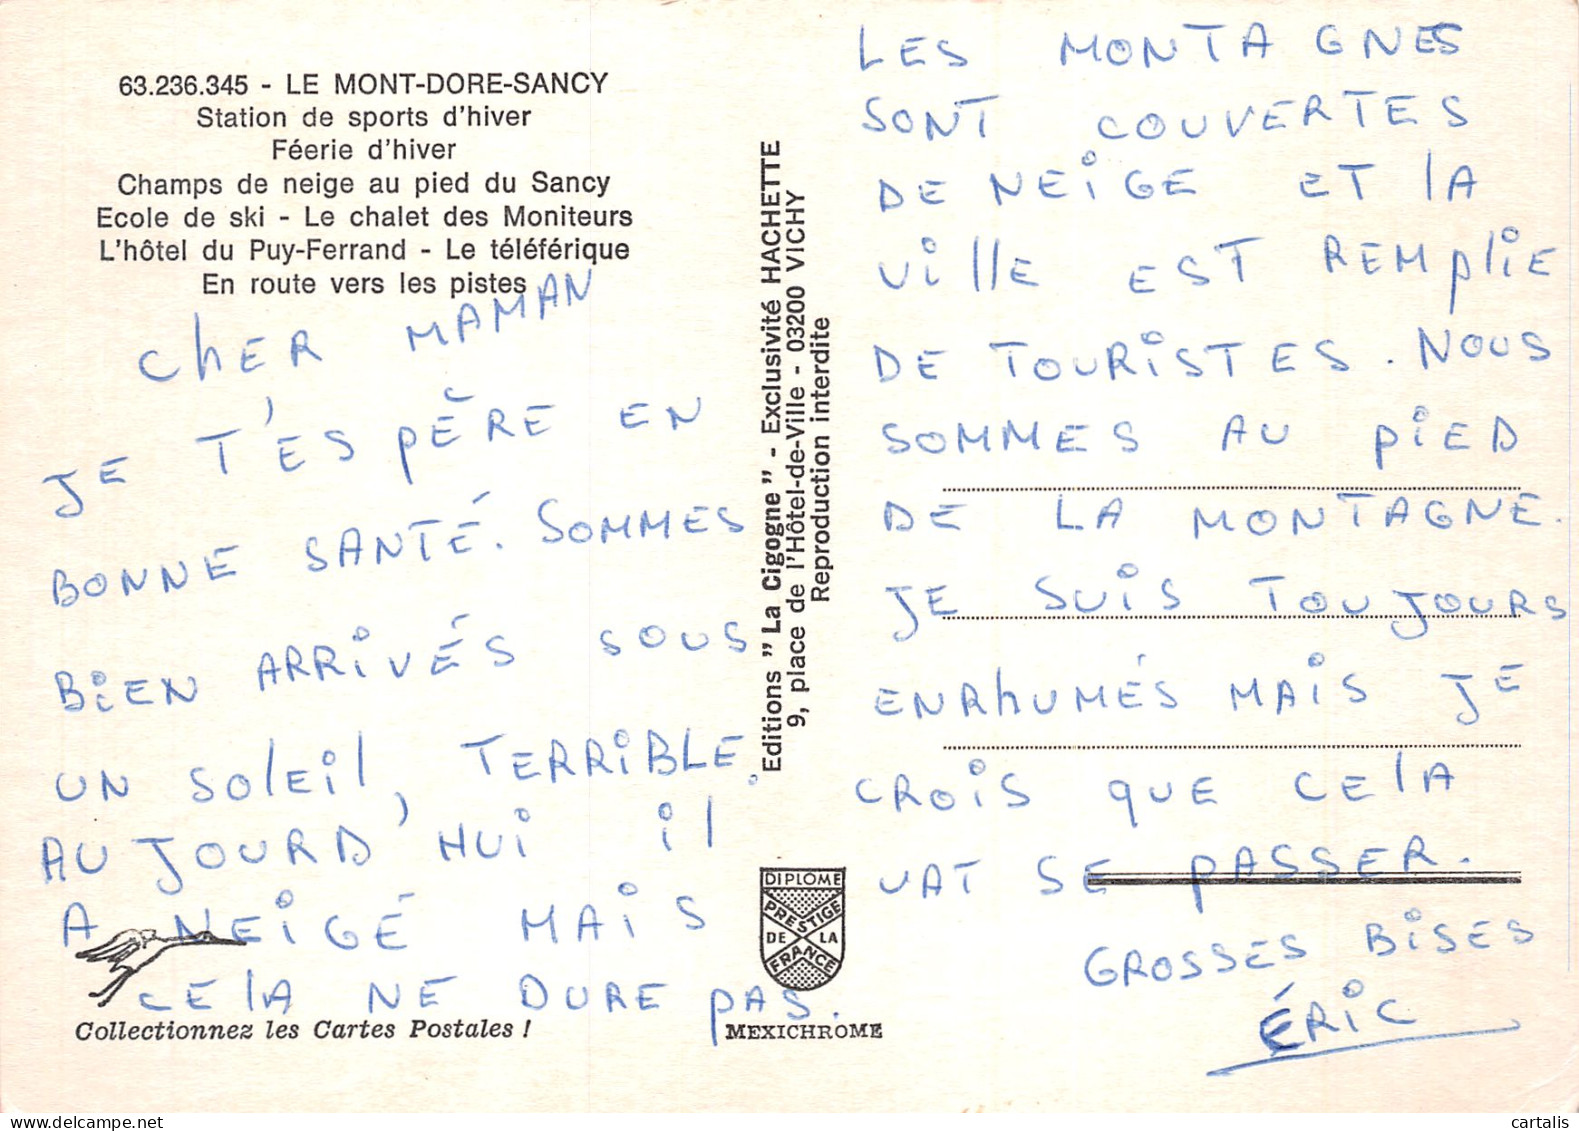 63.236.345 - LE MONT-DORE-SANCY
Station de sports d'hiver
Féerie d'hiver
Champs de neige au pied du Sancy
Ecole de ski - Le chalet des Moniteurs
L'hôtel du Puy-Ferrand - Le téléférique
En route vers les pistes
CHER MAMAN
JE T'ESPÈRE EN
BONNE SANTÉ. SOMMES
BIEN ARRIVÉS SOUS
UN SOLEIL TERRIBLE,
AUJOURD'HUI il
A NEIGÉ MAIS
CELA NE DURE PAS.
Collectionnez les Cartes Postales !
Editions "La Cigogne" - Exclusivité HACHETTE
9, place de l'Hôtel-de-Ville - 03200 VICHY
Reproduction interdite
DIPLOME
PRESTIGE
DE LA
FRANCE
MEXICHROME
LES MONTAGNES
SONT COUVERTES
DE NEIGE ET LA
VILLE EST REMPLIE
DE TOURISTES. NOUS
SOMMES AU PIED
DE LA MONTAGNE.
JE SUIS TOUJOURS
ENRHUMÉS MAIS JE
CROIS QUE CELA
VAT SE PASSER.
GROSSES BISES
ÉRIC
cartalis